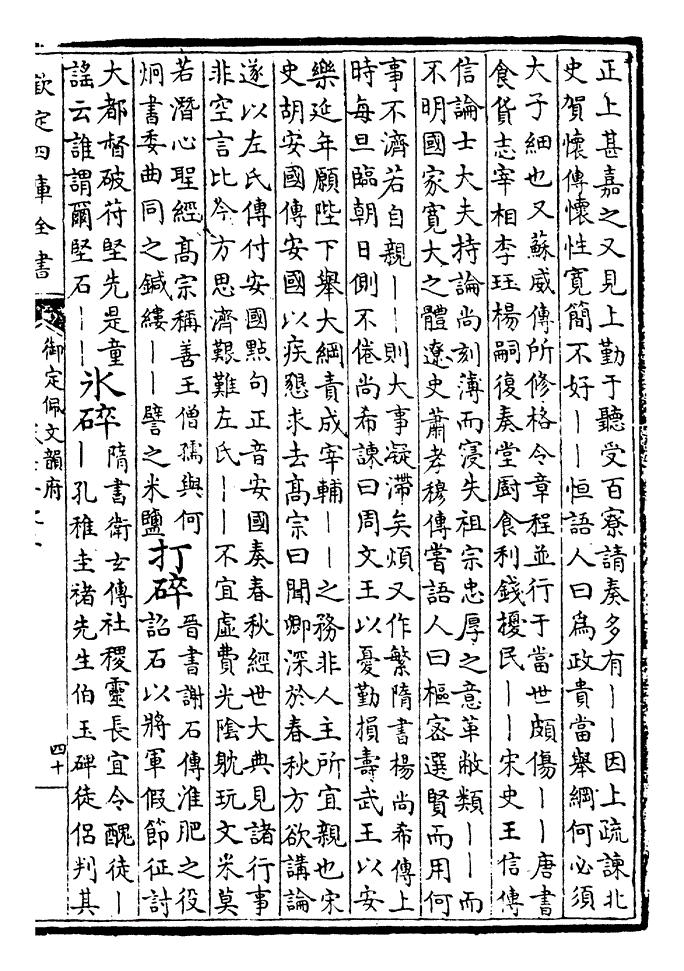 正上甚嘉之又見上勤于聽受百寮請奏多有——因上疏諫北
史賀懷傳懷性寛簡不好——恒語人曰爲政貴當舉綱何必須
大子細也又蘇威傳所修格令章程並行于當世頗傷——唐書
食貨志宰相李珏楊嗣復奏堂厨食利錢擾民——宋史王信傳
信論士大夫持論尚刻薄而寖失祖宗忠厚之意革敝類——而
不明國家寛大之體遼史蕭孝穆傳嘗語人曰樞宻選賢而用何
事不濟若自親——則大事凝滯矣煩又作繁隋書楊尚希傳上
時每旦臨朝日側不倦尚希諫曰周文王以憂勤損壽武王以安
樂延年願陛下舉大綱責成宰輔——之務非人主所宜親也宋
史胡安國傳安國以疾懇求去高宗曰聞卿深於春秋方欲講論
遂以左氏傳付安國點句正音安國奏春秋經世大典見諸行事
非空言比今方思濟艱難左氏——不宜虛費光陰躭玩文采莫
若潛心聖經高宗稱善王僧孺與何
炯書委曲同之鍼縷——譬之米鹽
打碎
晉書謝石傳淮肥之役
詔石以將軍假節征討
大都督破苻堅先是童
謡云誰謂爾堅石——
氷碎
隋書衛玄傳社稷靈長宜令醜徒—
—孔稚圭禇先生伯玉碑徒侣判其
欽定四庫全書
御定佩文韻府
四十